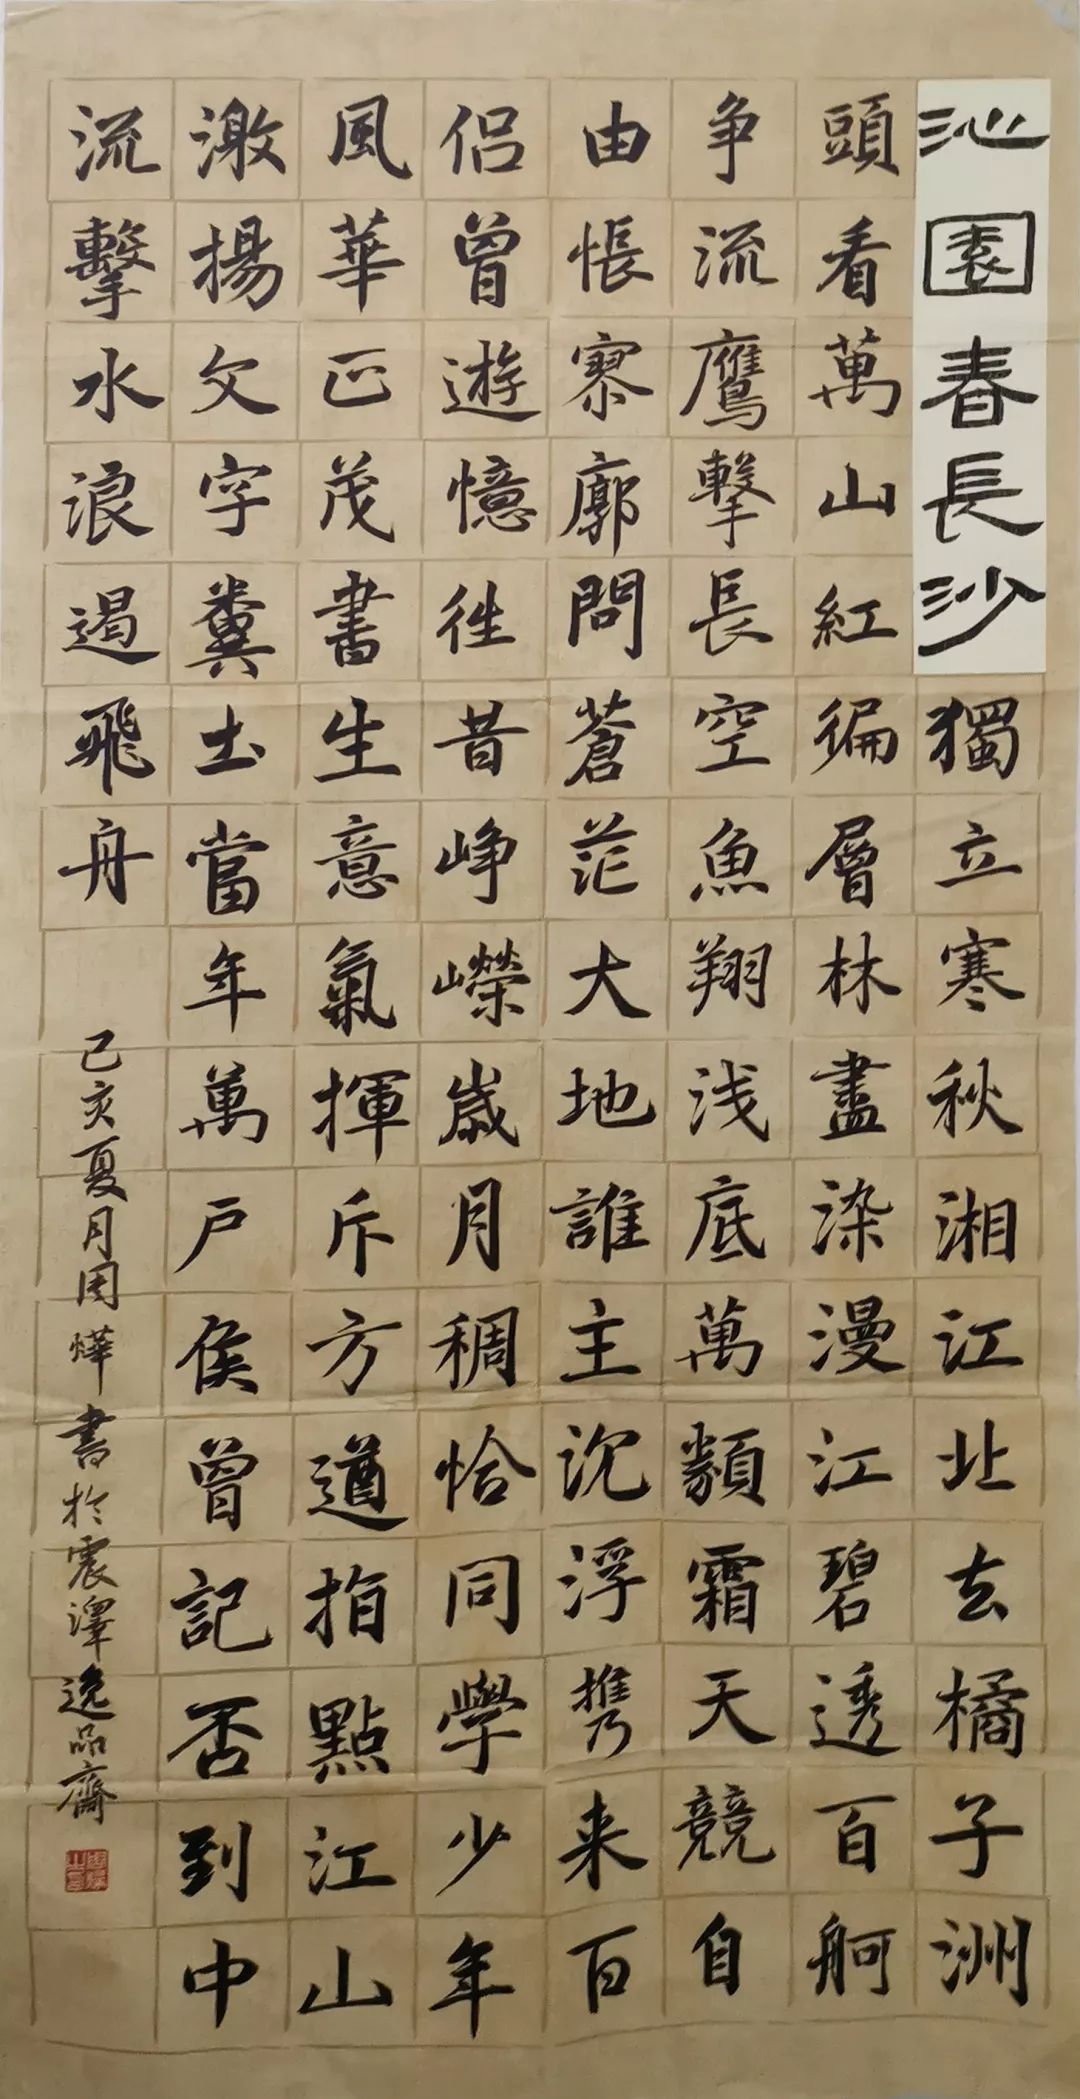 沁園春長沙獨立寒秋湘江北去橘子洲
頭看萬山紅徧層林盡染漫江碧透百舸
争流鷹擊長空魚翔浅底萬類霜天競自
由悵寥廓問蒼茫大地誰主沉浮携来百
侣曾遊憶往昔峥嶸歲月稠恰同學少年
風華正茂書生意氣揮斥方遒指點江山
激揚文字糞土當年萬户侯曾記否到中
流擊水浪遏飛舟
己亥夏月周燁書於震澤逸品齋